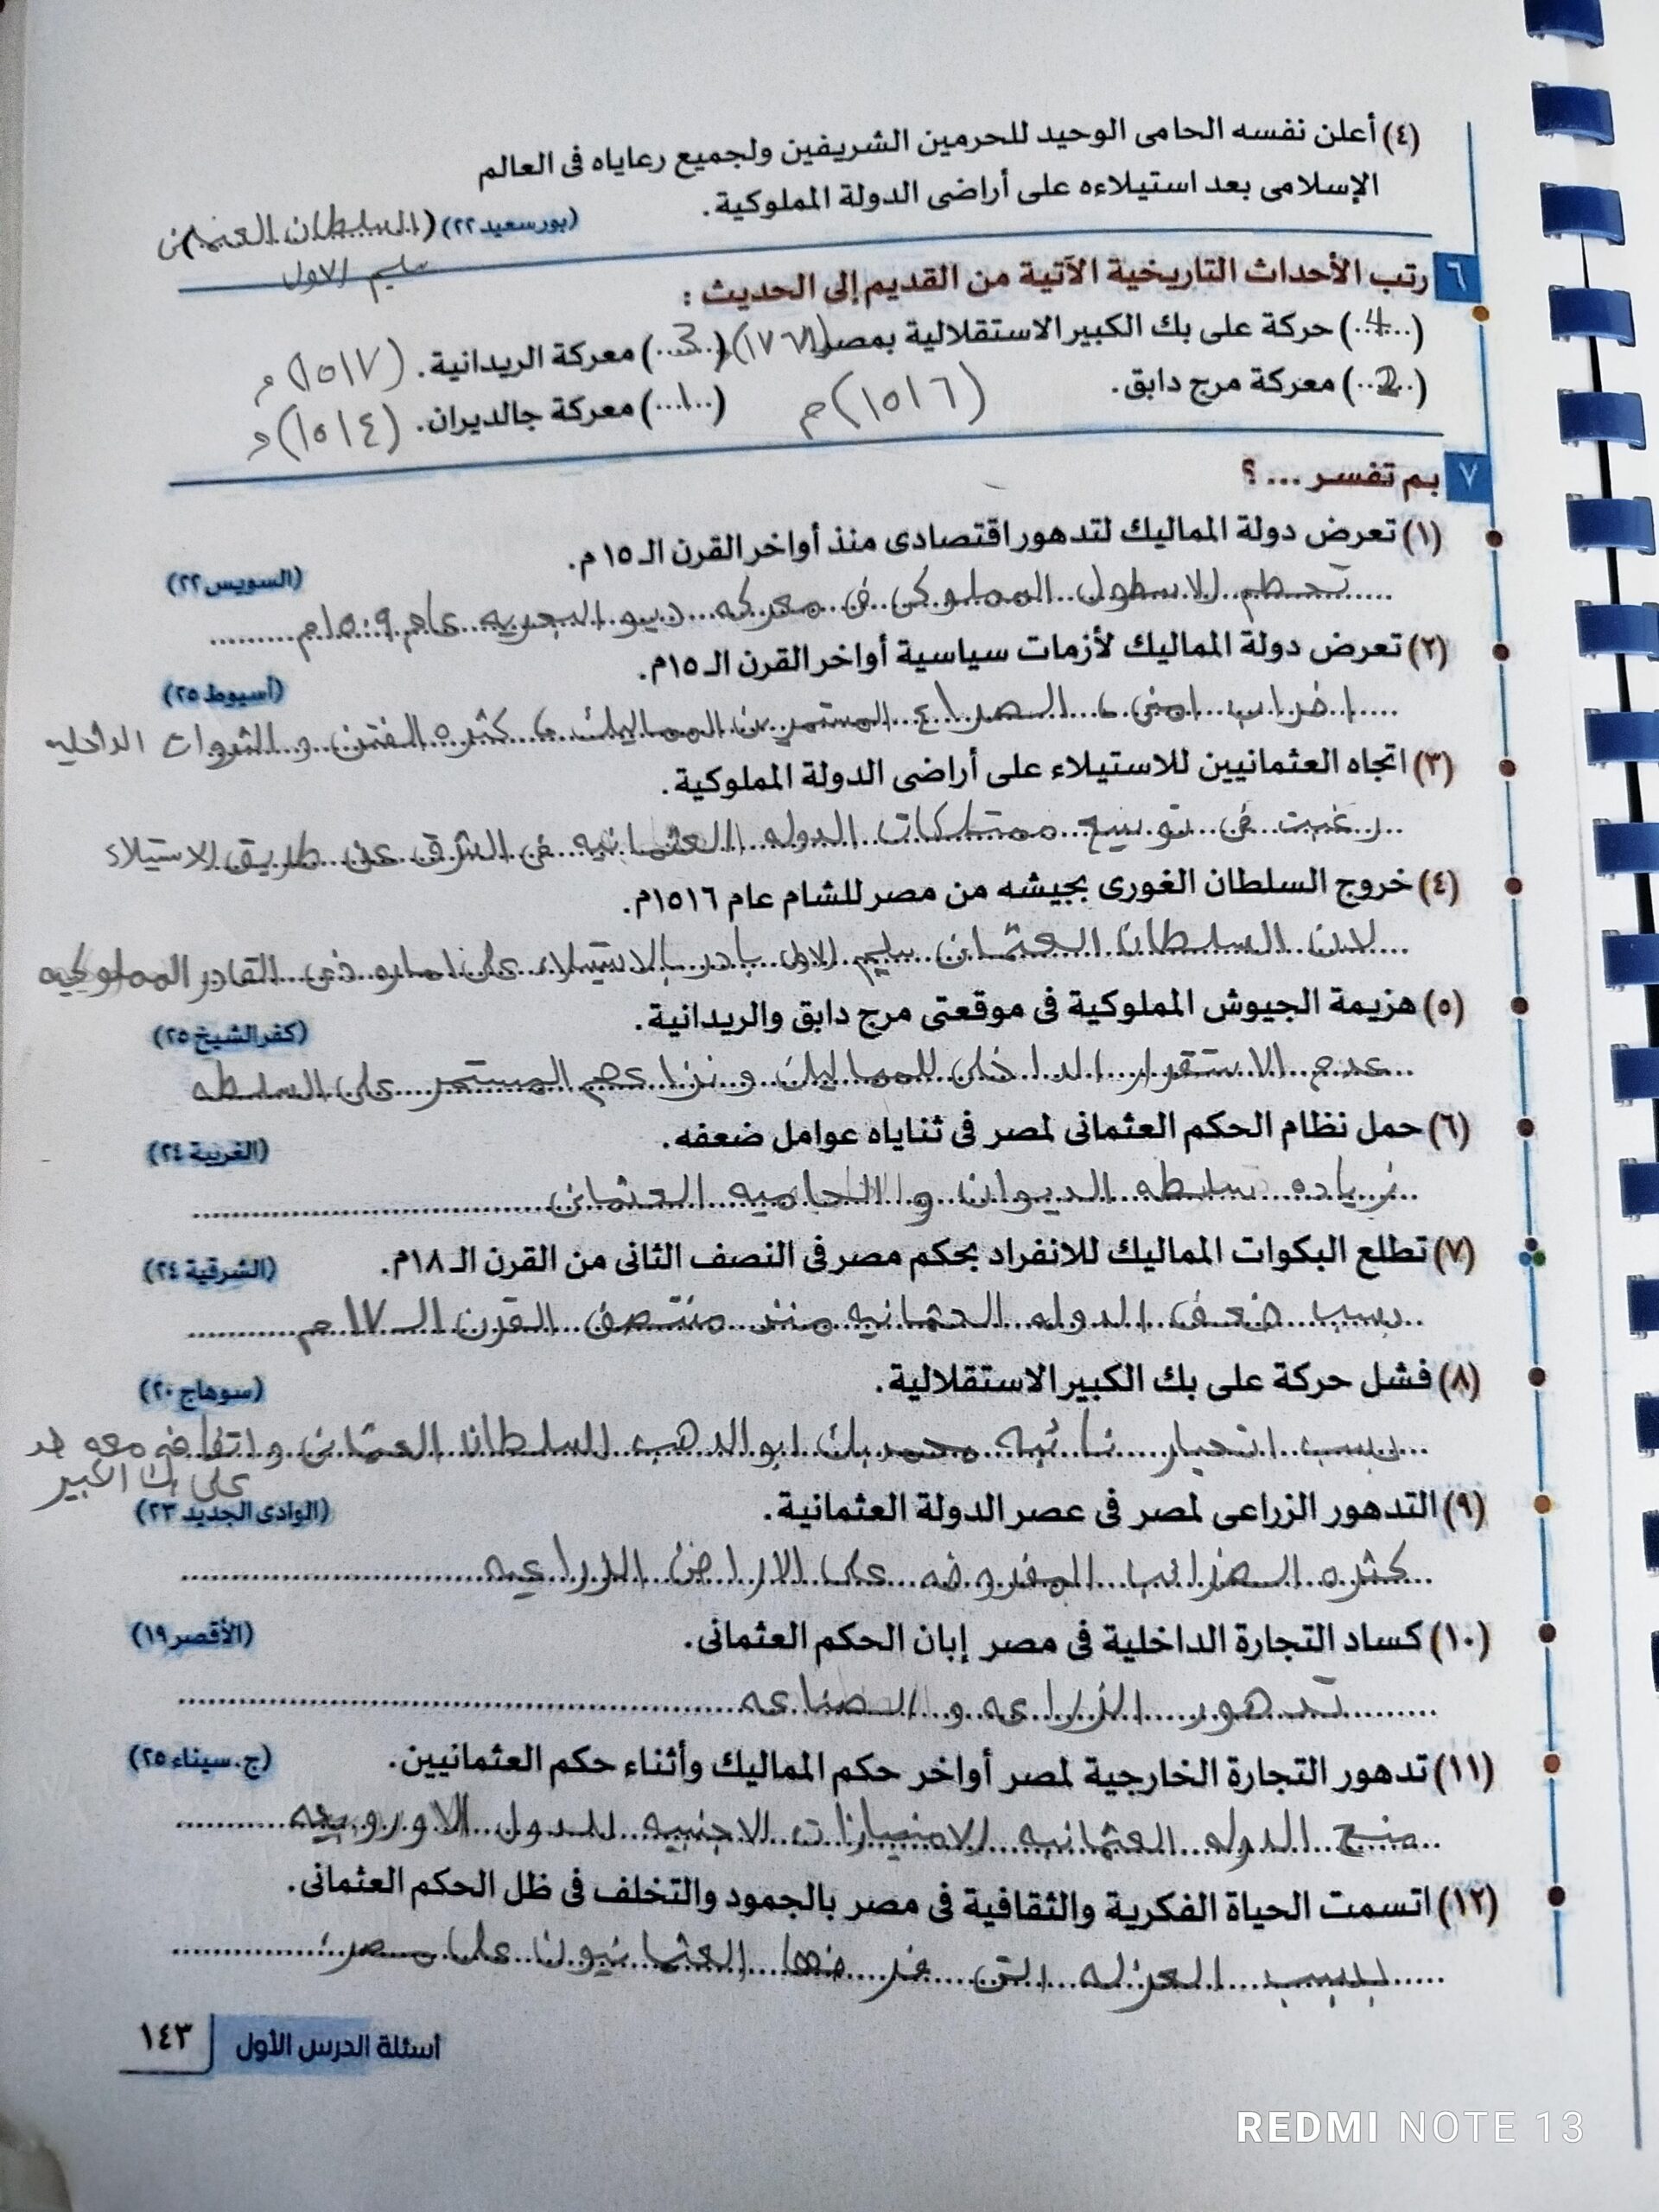 (٤) أعلن نفسه الحامى الوحيد للحرمين الشريفين ولجميع رعاياه فى العالم
الإسلامى بعد استيلاءه على أراضى الدولة المملوكية.
(بورسعيد ٢٢) (السلطان العثمانى
سليم الاول
٦ رتب الأحداث التاريخية الآتية من القديم إلى الحديث :
(..4..) حركة على بك الكبير الاستقلالية بمصر (١٧٦٨) (..3..) معركة الريدانية. (١٥١٧) م
(..2..) معركة مرج دابق. (١٥١٦) م (..١..) معركة جالديران. (١٥١٤) م
٧ بم تفسر ... ؟
(١) تعرض دولة المماليك لتدهور اقتصادى منذ أواخر القرن الـ ١٥ م. (السويس ٢٢)
تحطم الاسطول المملوكى فى معركه ديبو البحريه عام ١٥٠٩م
(٢) تعرض دولة المماليك لأزمات سياسية أواخر القرن الـ ١٥م. (أسيوط ٢٥)
امنى ، الصراع المستمر بين المماليك ، كثره الفتن و الثورات الداخليه
(٣) اتجاه العثمانيين للاستيلاء على أراضى الدولة المملوكية.
رغبت فى توسيع ممتلكات الدوله العثمانيه فى الشرق عن طريق الاستيلاء
(٤) خروج السلطان الغورى بجيشه من مصر للشام عام ١٥١٦م.
لان السلطان العثمانى سليم الاول بادر بالاستيلاء على اماره ذى القادر المملوكيه
(٥) هزيمة الجيوش المملوكية فى موقعتى مرج دابق والريدانية. (كفر الشيخ ٢٥)
عدم الاستقرار الداخلى للمماليك و نزاعهم المستمر على السلطه
(٦) حمل نظام الحكم العثمانى لمصر فى ثناياه عوامل ضعفه. (الغربية ٢٤)
زياده سلطه الديوان و الحاميه العثمانى
(٧) تطلع البكوات المماليك للانفراد بحكم مصر فى النصف الثانى من القرن الـ ١٨م. (الشرقية ٢٤)
بسبب ضعف الدوله العثمانيه منذ منتصف القرن الـ ١٧ م
(٨) فشل حركة على بك الكبير الاستقلالية. (سوهاج ٢٠)
بسبب انحياز نائبه محمد بك ابو الدهب للسلطان العثمانى و اتفاقه معه ضد
على بك الكبير
(٩) التدهور الزراعى لمصر فى عصر الدولة العثمانية. (الوادى الجديد ٢٣)
كثره الضرائب المفروضه على الاراضى الزراعيه
(١٠) كساد التجارة الداخلية فى مصر إبان الحكم العثمانى. (الأقصر ١٩)
تدهور الزراعه و الصناعه
(١١) تدهور التجارة الخارجية لمصر أواخر حكم المماليك وأثناء حكم العثمانيين. (ج. سيناء ٢٥)
منح الدوله العثمانيه الامتيازات الاجنبيه للدول الاوروبيه
(١٢) اتسمت الحياة الفكرية والثقافية فى مصر بالجمود والتخلف فى ظل الحكم العثمانى.
بسبب العزله التى فرضها العثمانيون على مصر
أسئلة الدرس الأول ١٤٣
REDMI NOTE 13